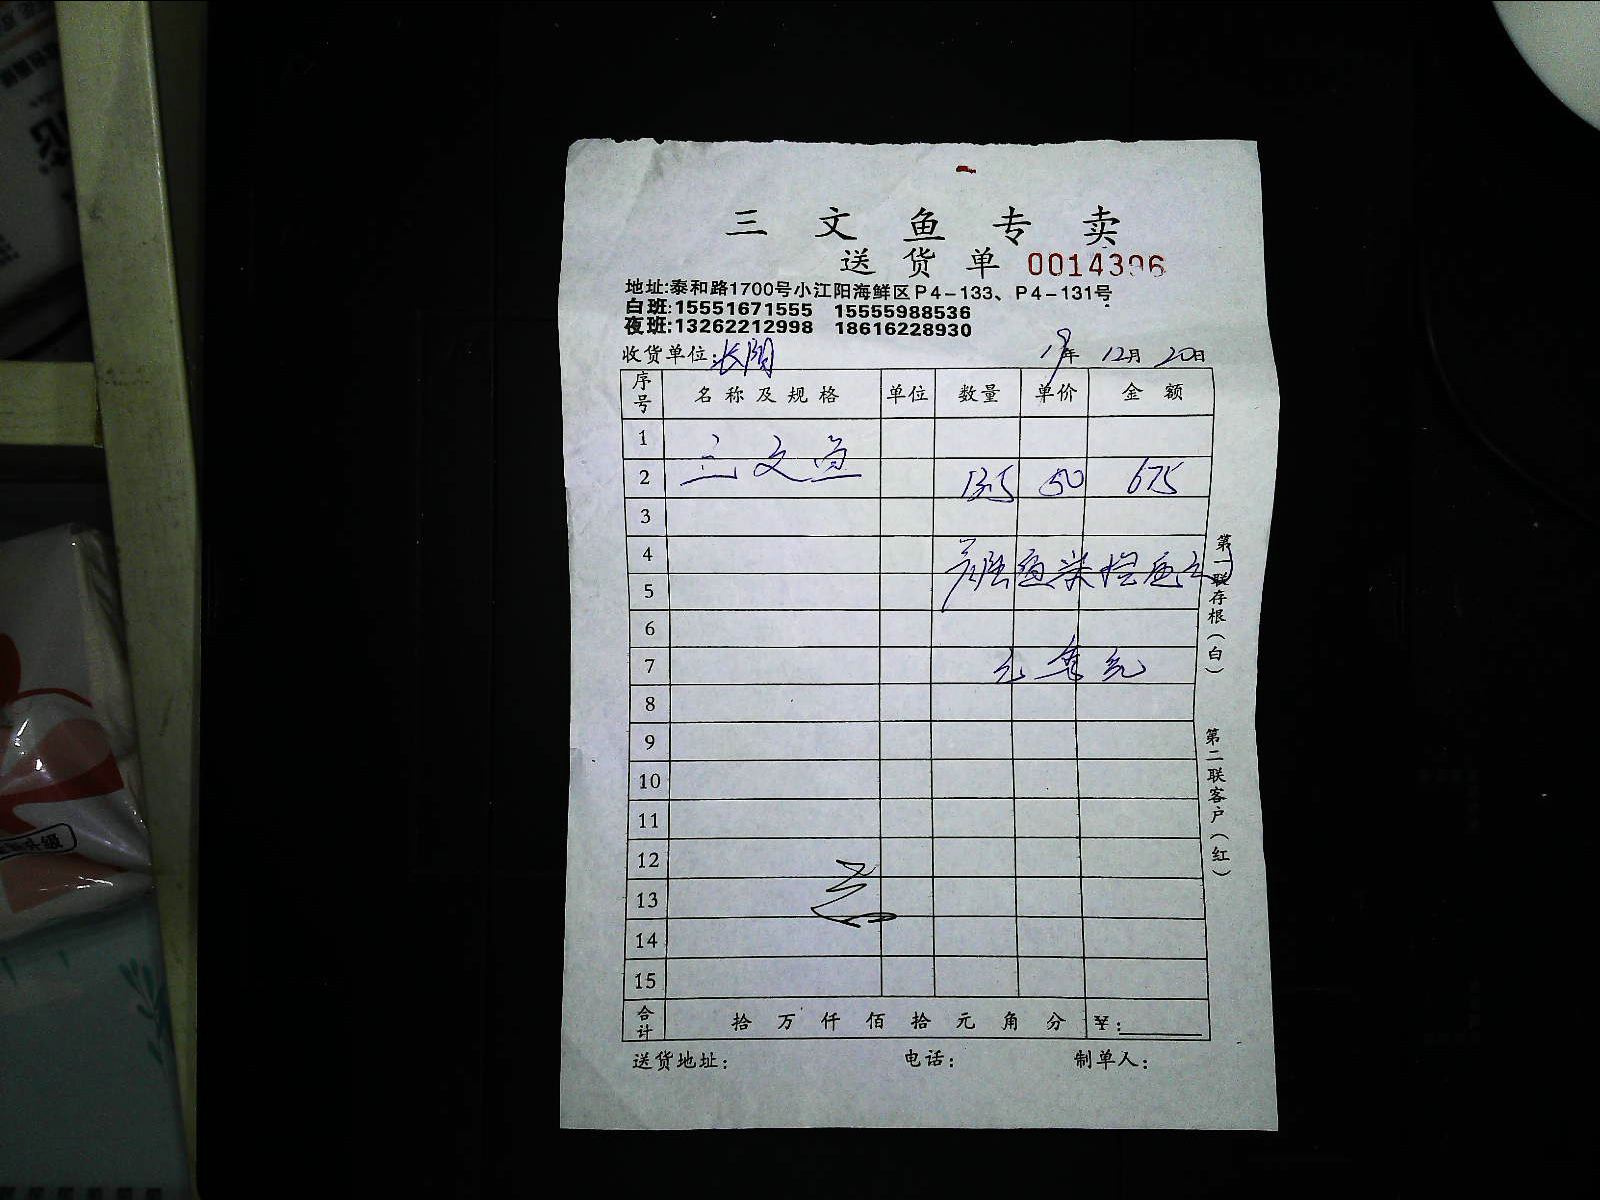 三文鱼专卖
送货单 0014396
地址:泰和路1700号小江阳海鲜区P4-133、P4-131号
白班:15551671555 15555988536
夜班:13262212998 18616228930
收货单位:长阳 19年 12月 20日
序号 名称及规格 单位 数量 单价 金额
1
2 三文鱼 13.5 50 675
3
4
5
6
7
8
9
10
11
12
13
14
15
合计 拾 万 仟 佰 拾 元 角 分 ¥:
送货地址: 电话: 制单人:
第一联存根(白)
第二联客户(红)